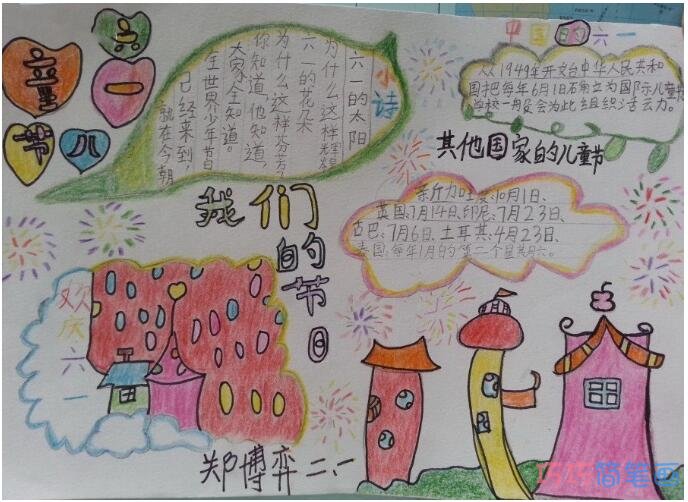 六一
儿童节
小诗
六一的太阳
为什么这样
六一的花朵
为什么这样芬芳?
你知道,他知道,
大家全知道。
全世界少年节日
已经来到,
就在今朝
中国的六一
从1949年开始中华人民共和
国把每年6月1日
立为国际儿童节
学校一般会为此组织活动。
其他国家的儿童节
新加坡:10月1日、
英国:7月14日、印尼:7月23日、
古巴:7月6日、土耳其:4月23日、
泰国:每年1月的第二个星期六。
我们的节日
欢庆六一
郑博弈 二、一
巧巧简笔画